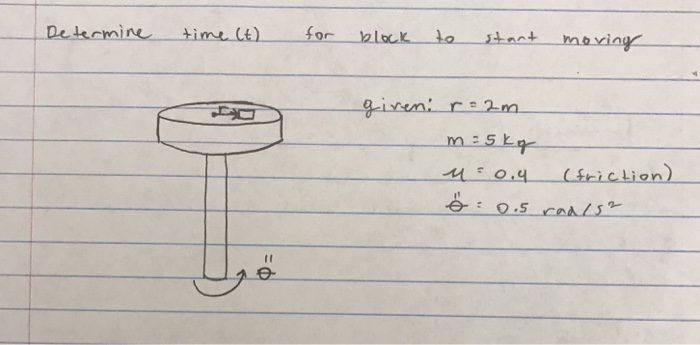 Determine time (t) for block to start moving
given: r = 2m
m = 5 kg
μ = 0.4 (friction)
r
θ̈ = 0.5 rad/s²
θ̈